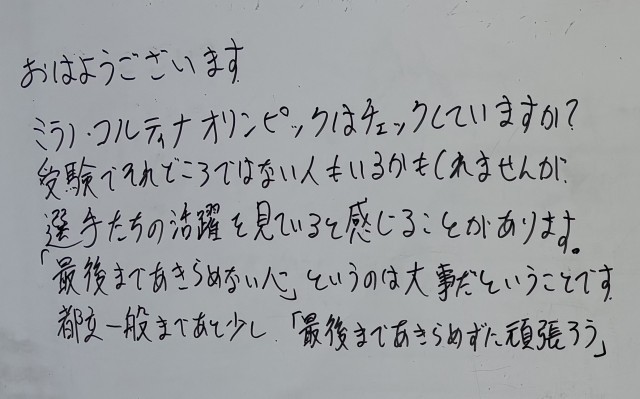 おはようございます
ミラノ・コルティナオリンピックはチェックしていますか?
受験でそれどころではない人もいるかもしれませんが、
選手たちの活躍を見ていると感じることがあります。
「最後まであきらめない心」というのは大事だということです
都立一般まであと少し、「最後まであきらめずに頑張ろう」